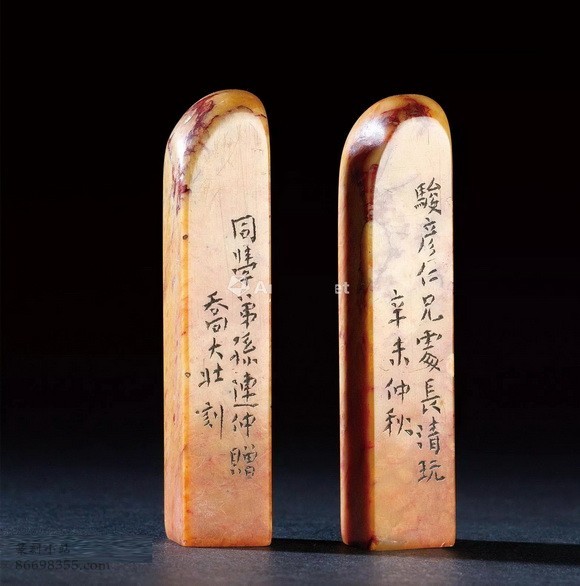 駿彦仁兄處長清玩
辛未仲秋
同學弟孫連仲贈
喬大壯刻
86698355.com